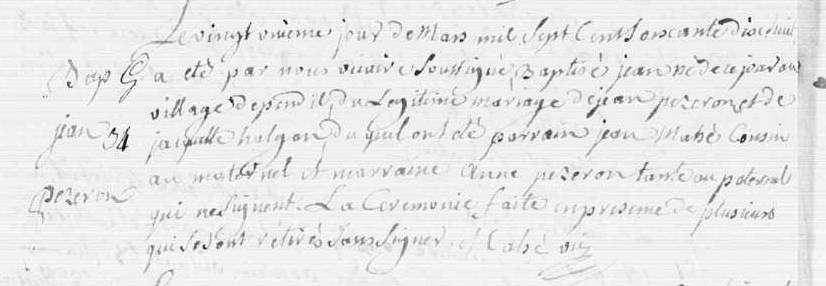 Le vingt unieme jour de Mars mil Sept Cent Soixante dix huit
Bap G a été par nous vicaire Soussigné Baptisé jean né de ce jour au
village du Legitime mariage de jean pezeron et de
jean 34 jacquette halgan, du quel ont été parrain jean Mahé Cousin
au maternel et marraine Anne pezeron tante au paternel
pezeron
qui ne signent. La Ceremonie faite en presence de plusieurs
qui se sont retirés sans signer. Mahé vic